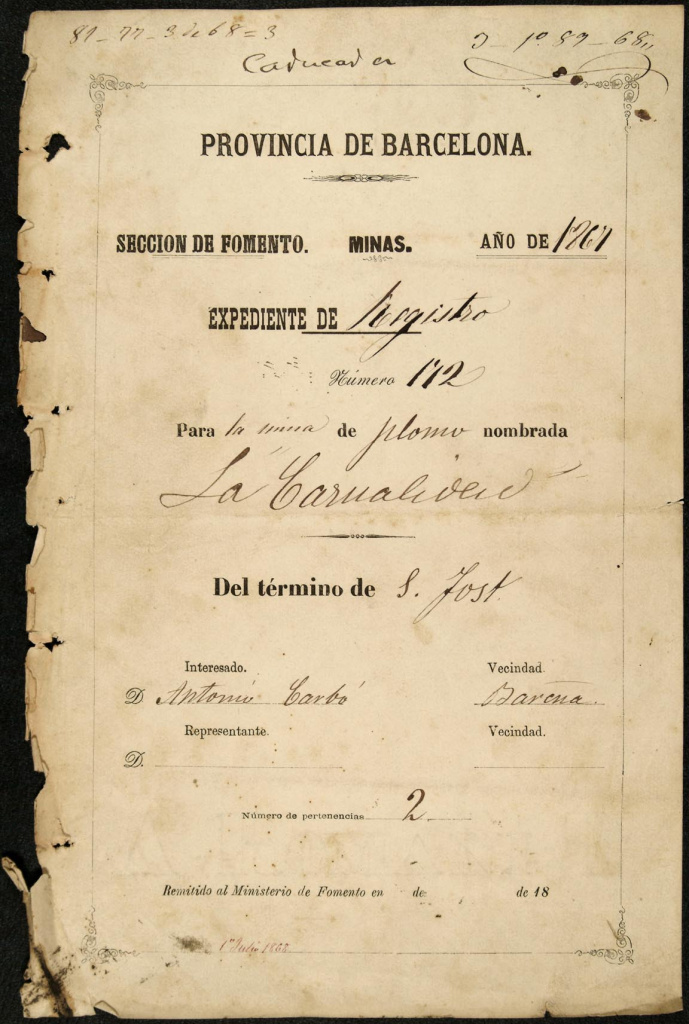 81 - 77 - 3 de 68 = 3
1º 89 - 68
PROVINCIA DE BARCELONA.
SECCION DE FOMENTO. MINAS. AÑO DE 1867
EXPEDIENTE DE Registro
Número 172
Para la mina de plomo nombrada
La
Del término de S. Just
Interesado. Vecindad.
D Antonio Carbó Barcna.
Representante. Vecindad.
D.
Número de pertenencias 2
Remitido al Ministerio de Fomento en de de 18
1º Julio 1868